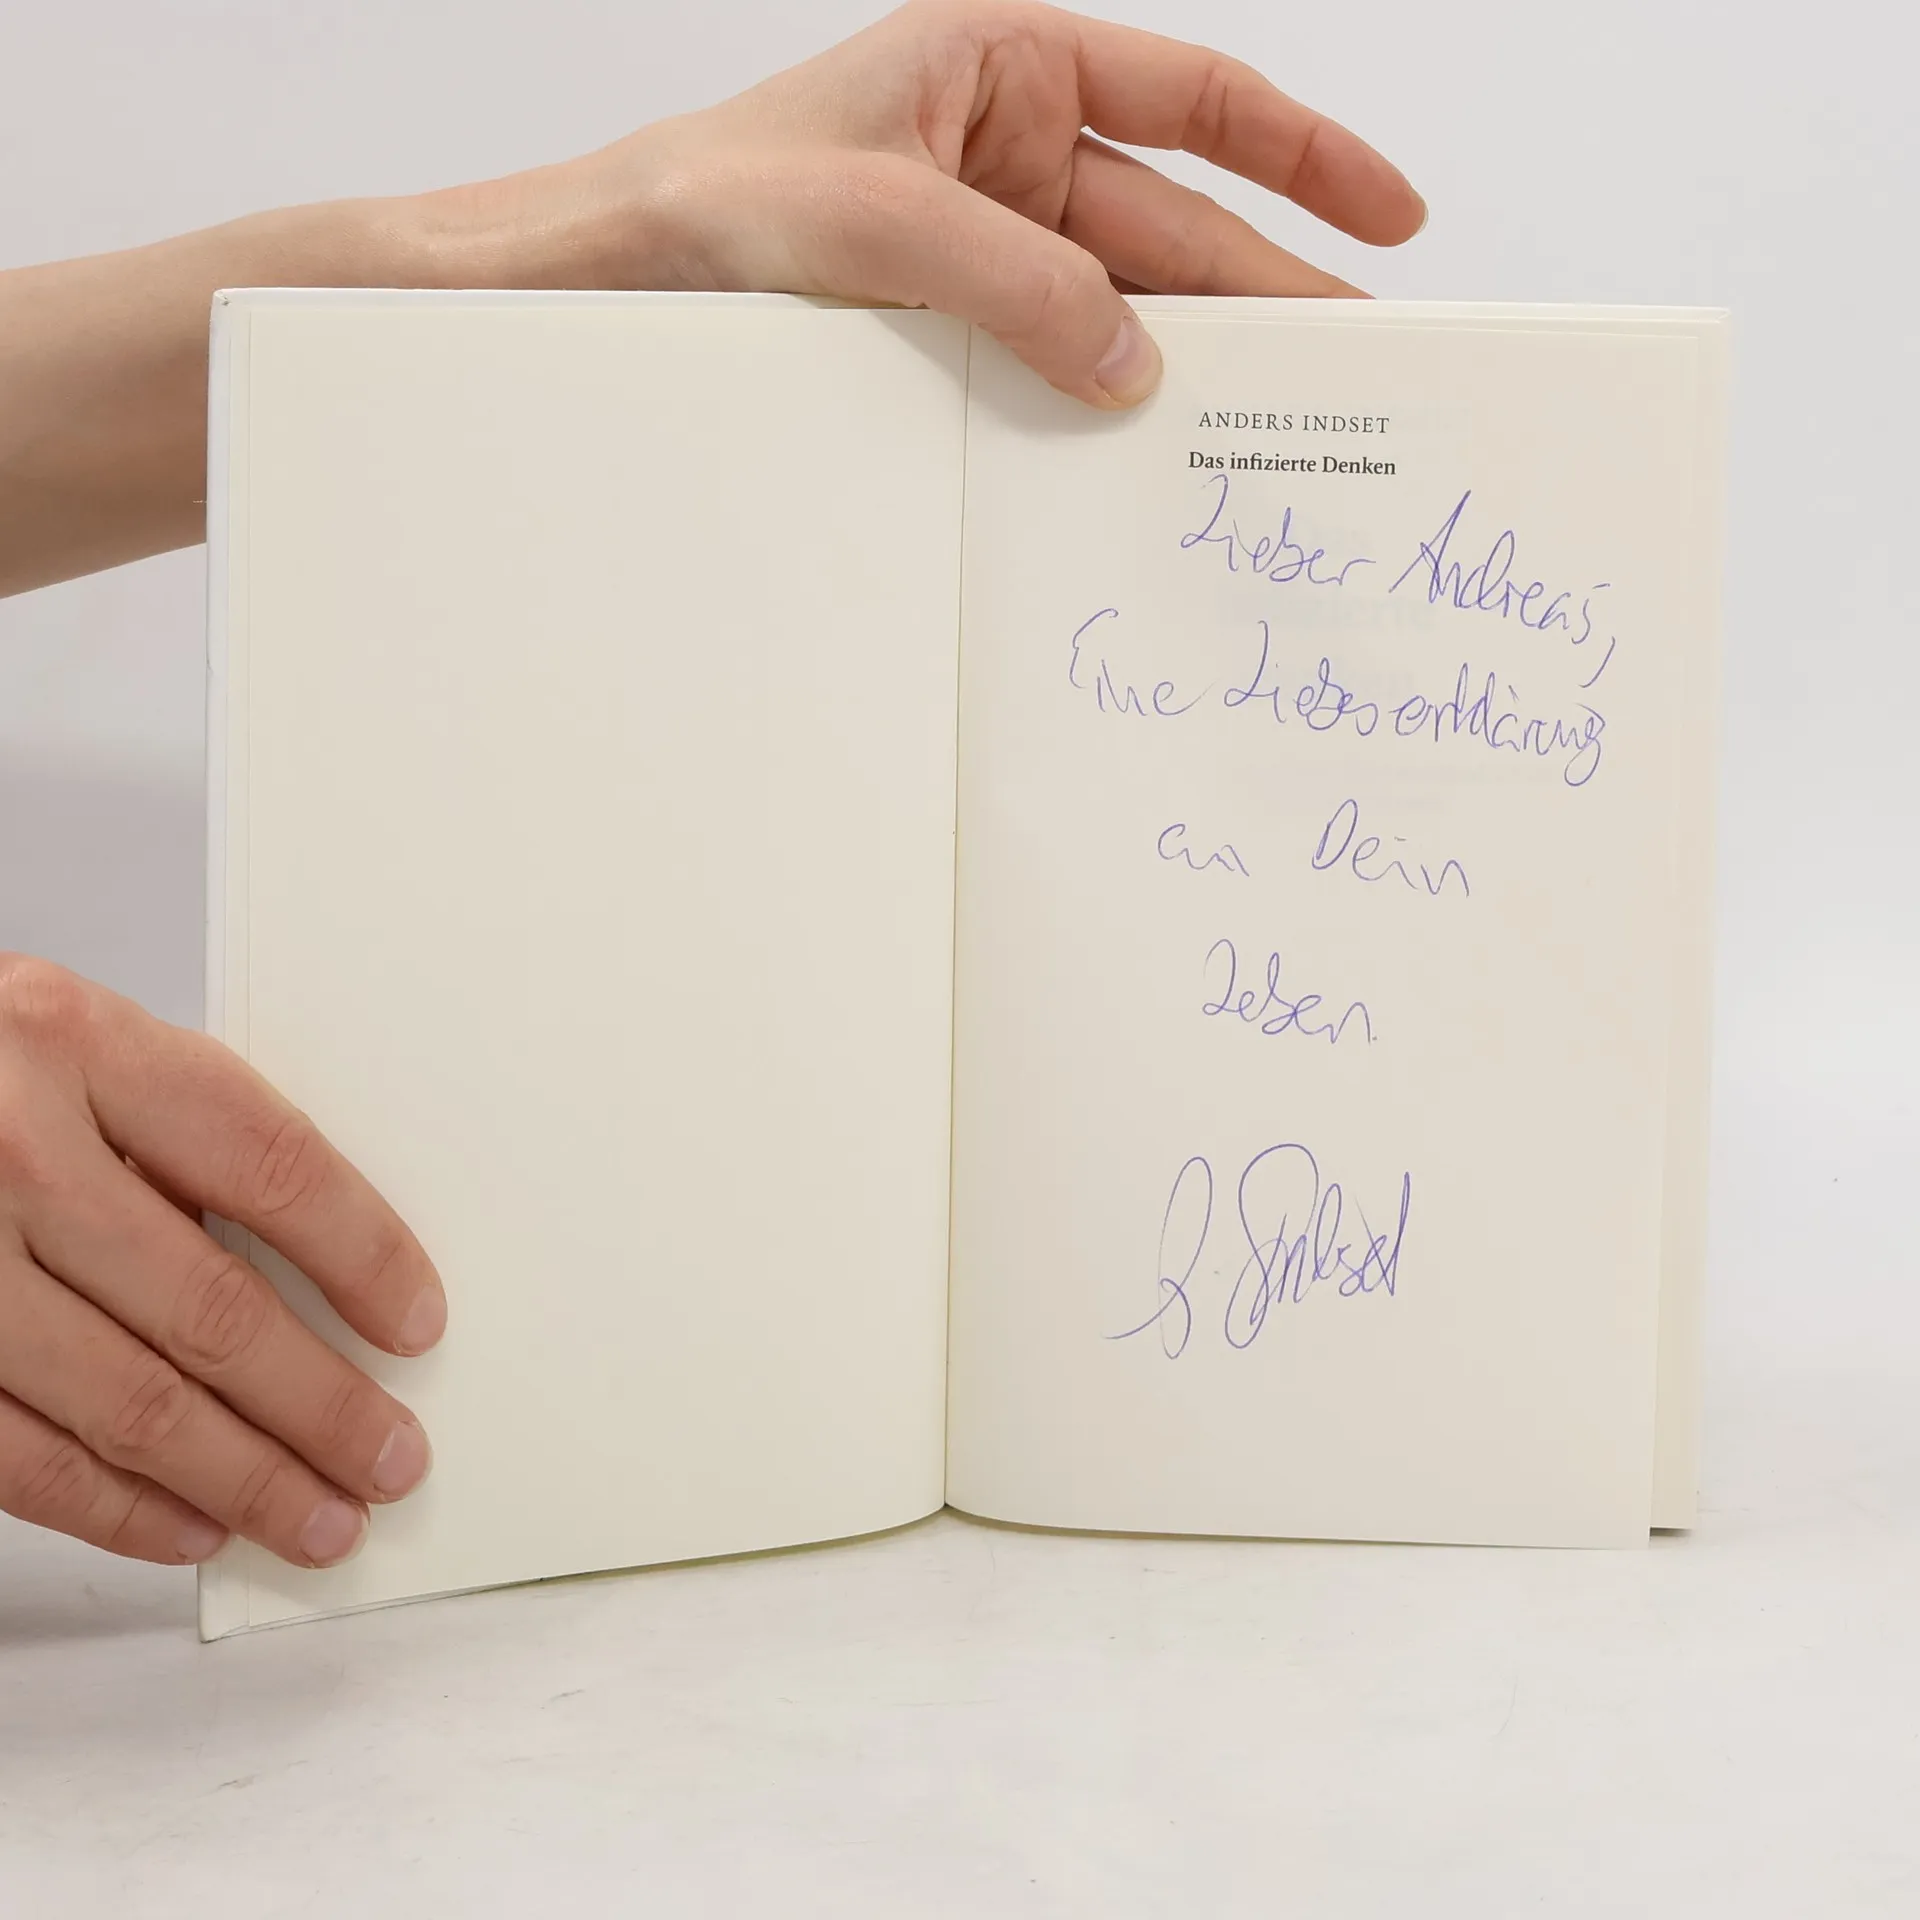 ANDERS INDSET
Das infizierte Denken
Lieber Andreas,
Eine Liebeserklärung
an Dein
Leben.
A. Indset